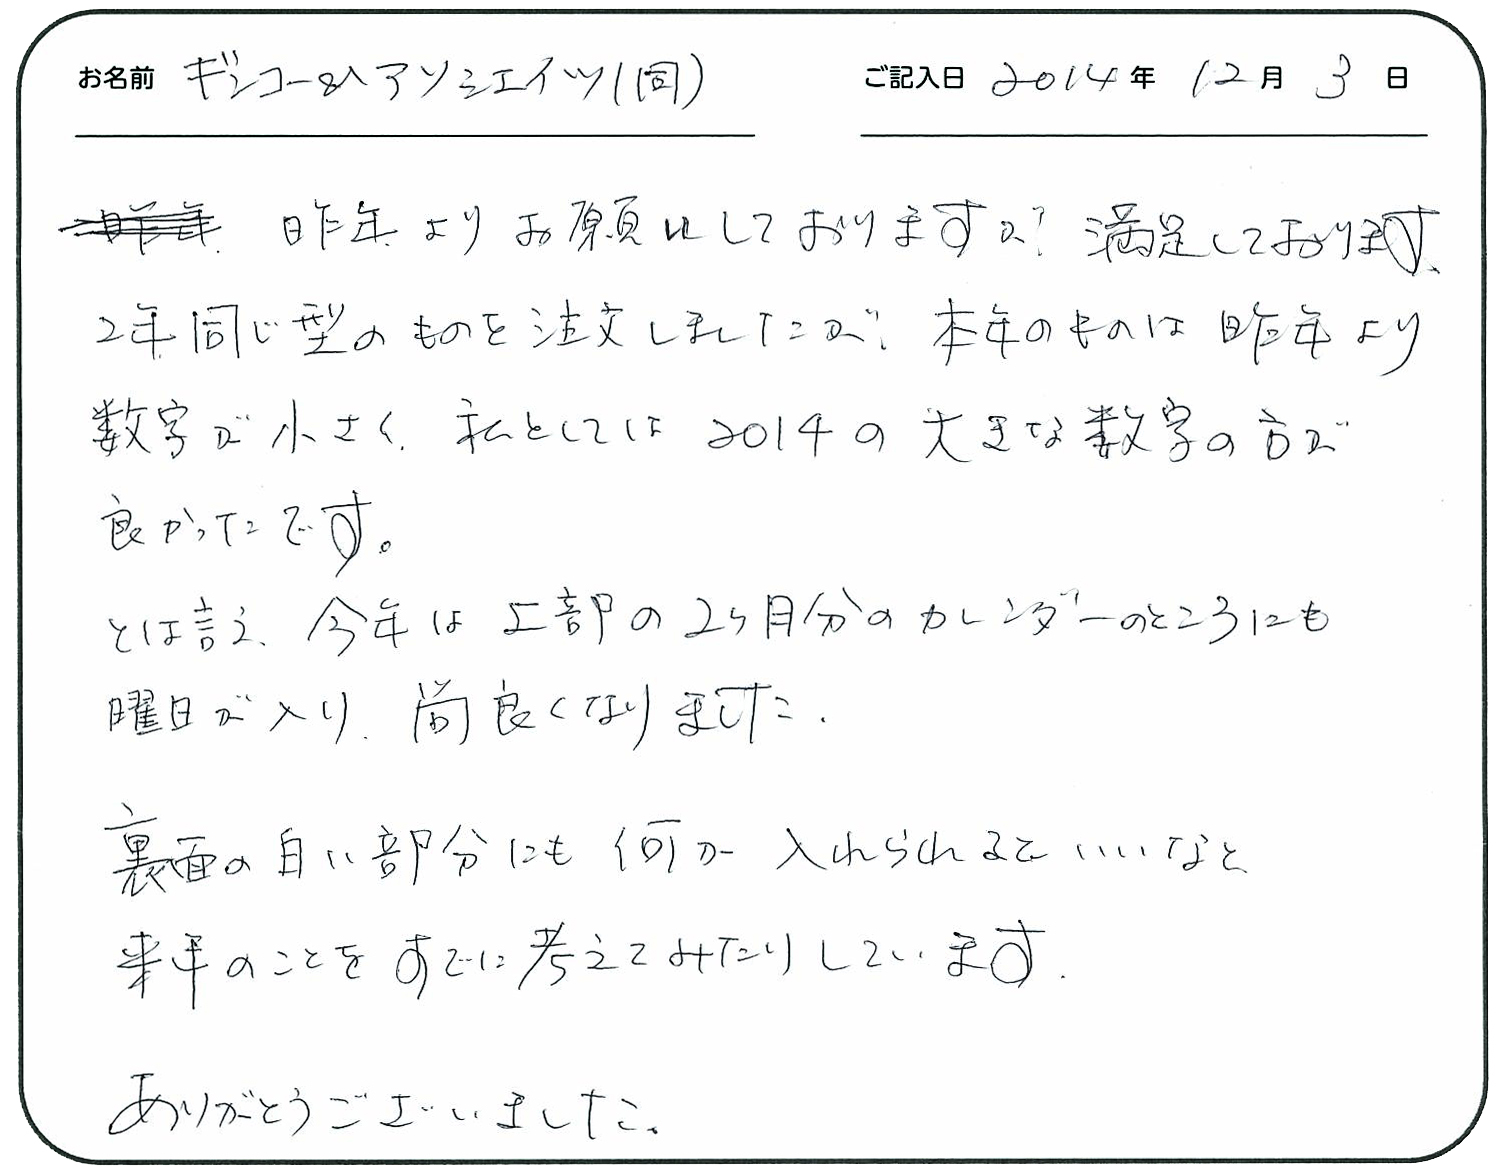 お名前 ギンコー&アソシエイツ(同) ご記入日 2014年 12月 3日
昨年 昨年よりお願いしておりますが、満足しております、
2年同じ型のものを注文しましたが、本年のものは昨年より
数字が小さく、私としては2014の大きな数字の方が
良かったです。
とは言え、今年は上部の2ヶ月分のカレンダーのところにも
曜日が入り、尚良くなりました.
裏面の白い部分にも何か入れられるといいなと
来年のことをすでに考えてみたりしています.
ありがとうございました。